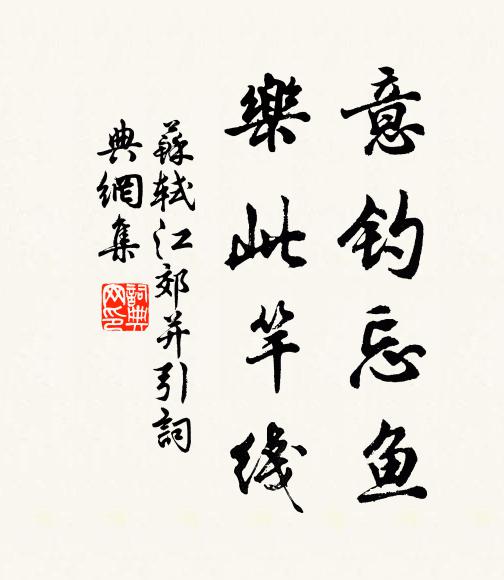 意钓忘鱼
樂此竿线
蘇轼江郊并引詞
典網集
詞典网印